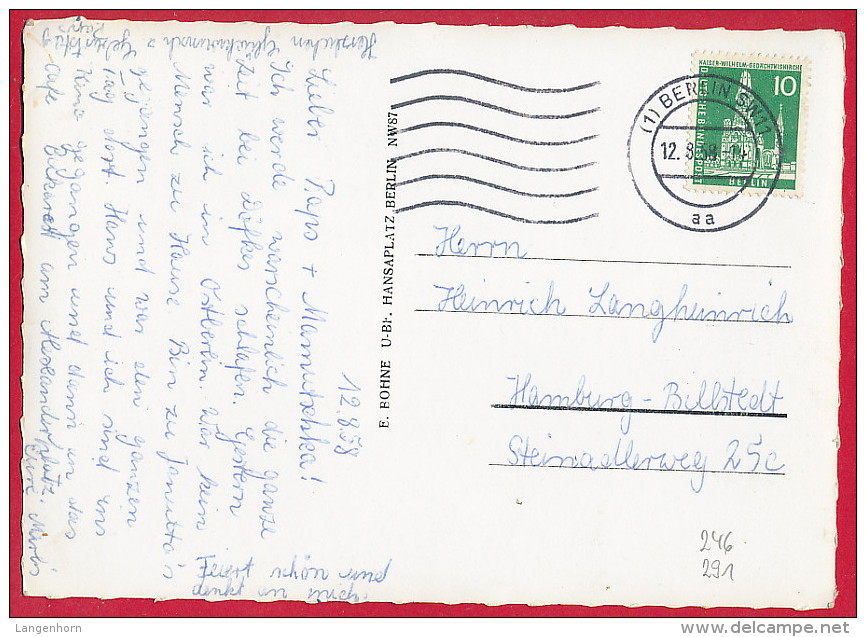 12.8.58
Lieber Paps + Mamutschka!
Ich werde warscheinlich die ganze
Zeit bei Wölkes schlafen. Gestern
war ich in Ostberlin. War kein
Mensch zu Hause. Bin zu Janetta's
gegangen und war den ganzen
Tag dort. Hans und ich sind ins
Kino gegangen und dann in das
Cafe am Alexanderplatz.
Eure
Herzlichen Glückwunsch z.
Geburtstag
Paps
E. BOHNE U-Bh. HANSAPLATZ, BERLIN NW87
KAISER-WILHELM-GEDÄCHTNISKIRCHE
10
DEUTSCHE BUNDESPOST
BERLIN
(1) BERLIN SW11
12.8.58
aa
Herrn
Heinrich Langheinrich
Hamburg-Billstedt
Steinadlerweg 25c
246
291
Langenhorn
www.delcampe.net